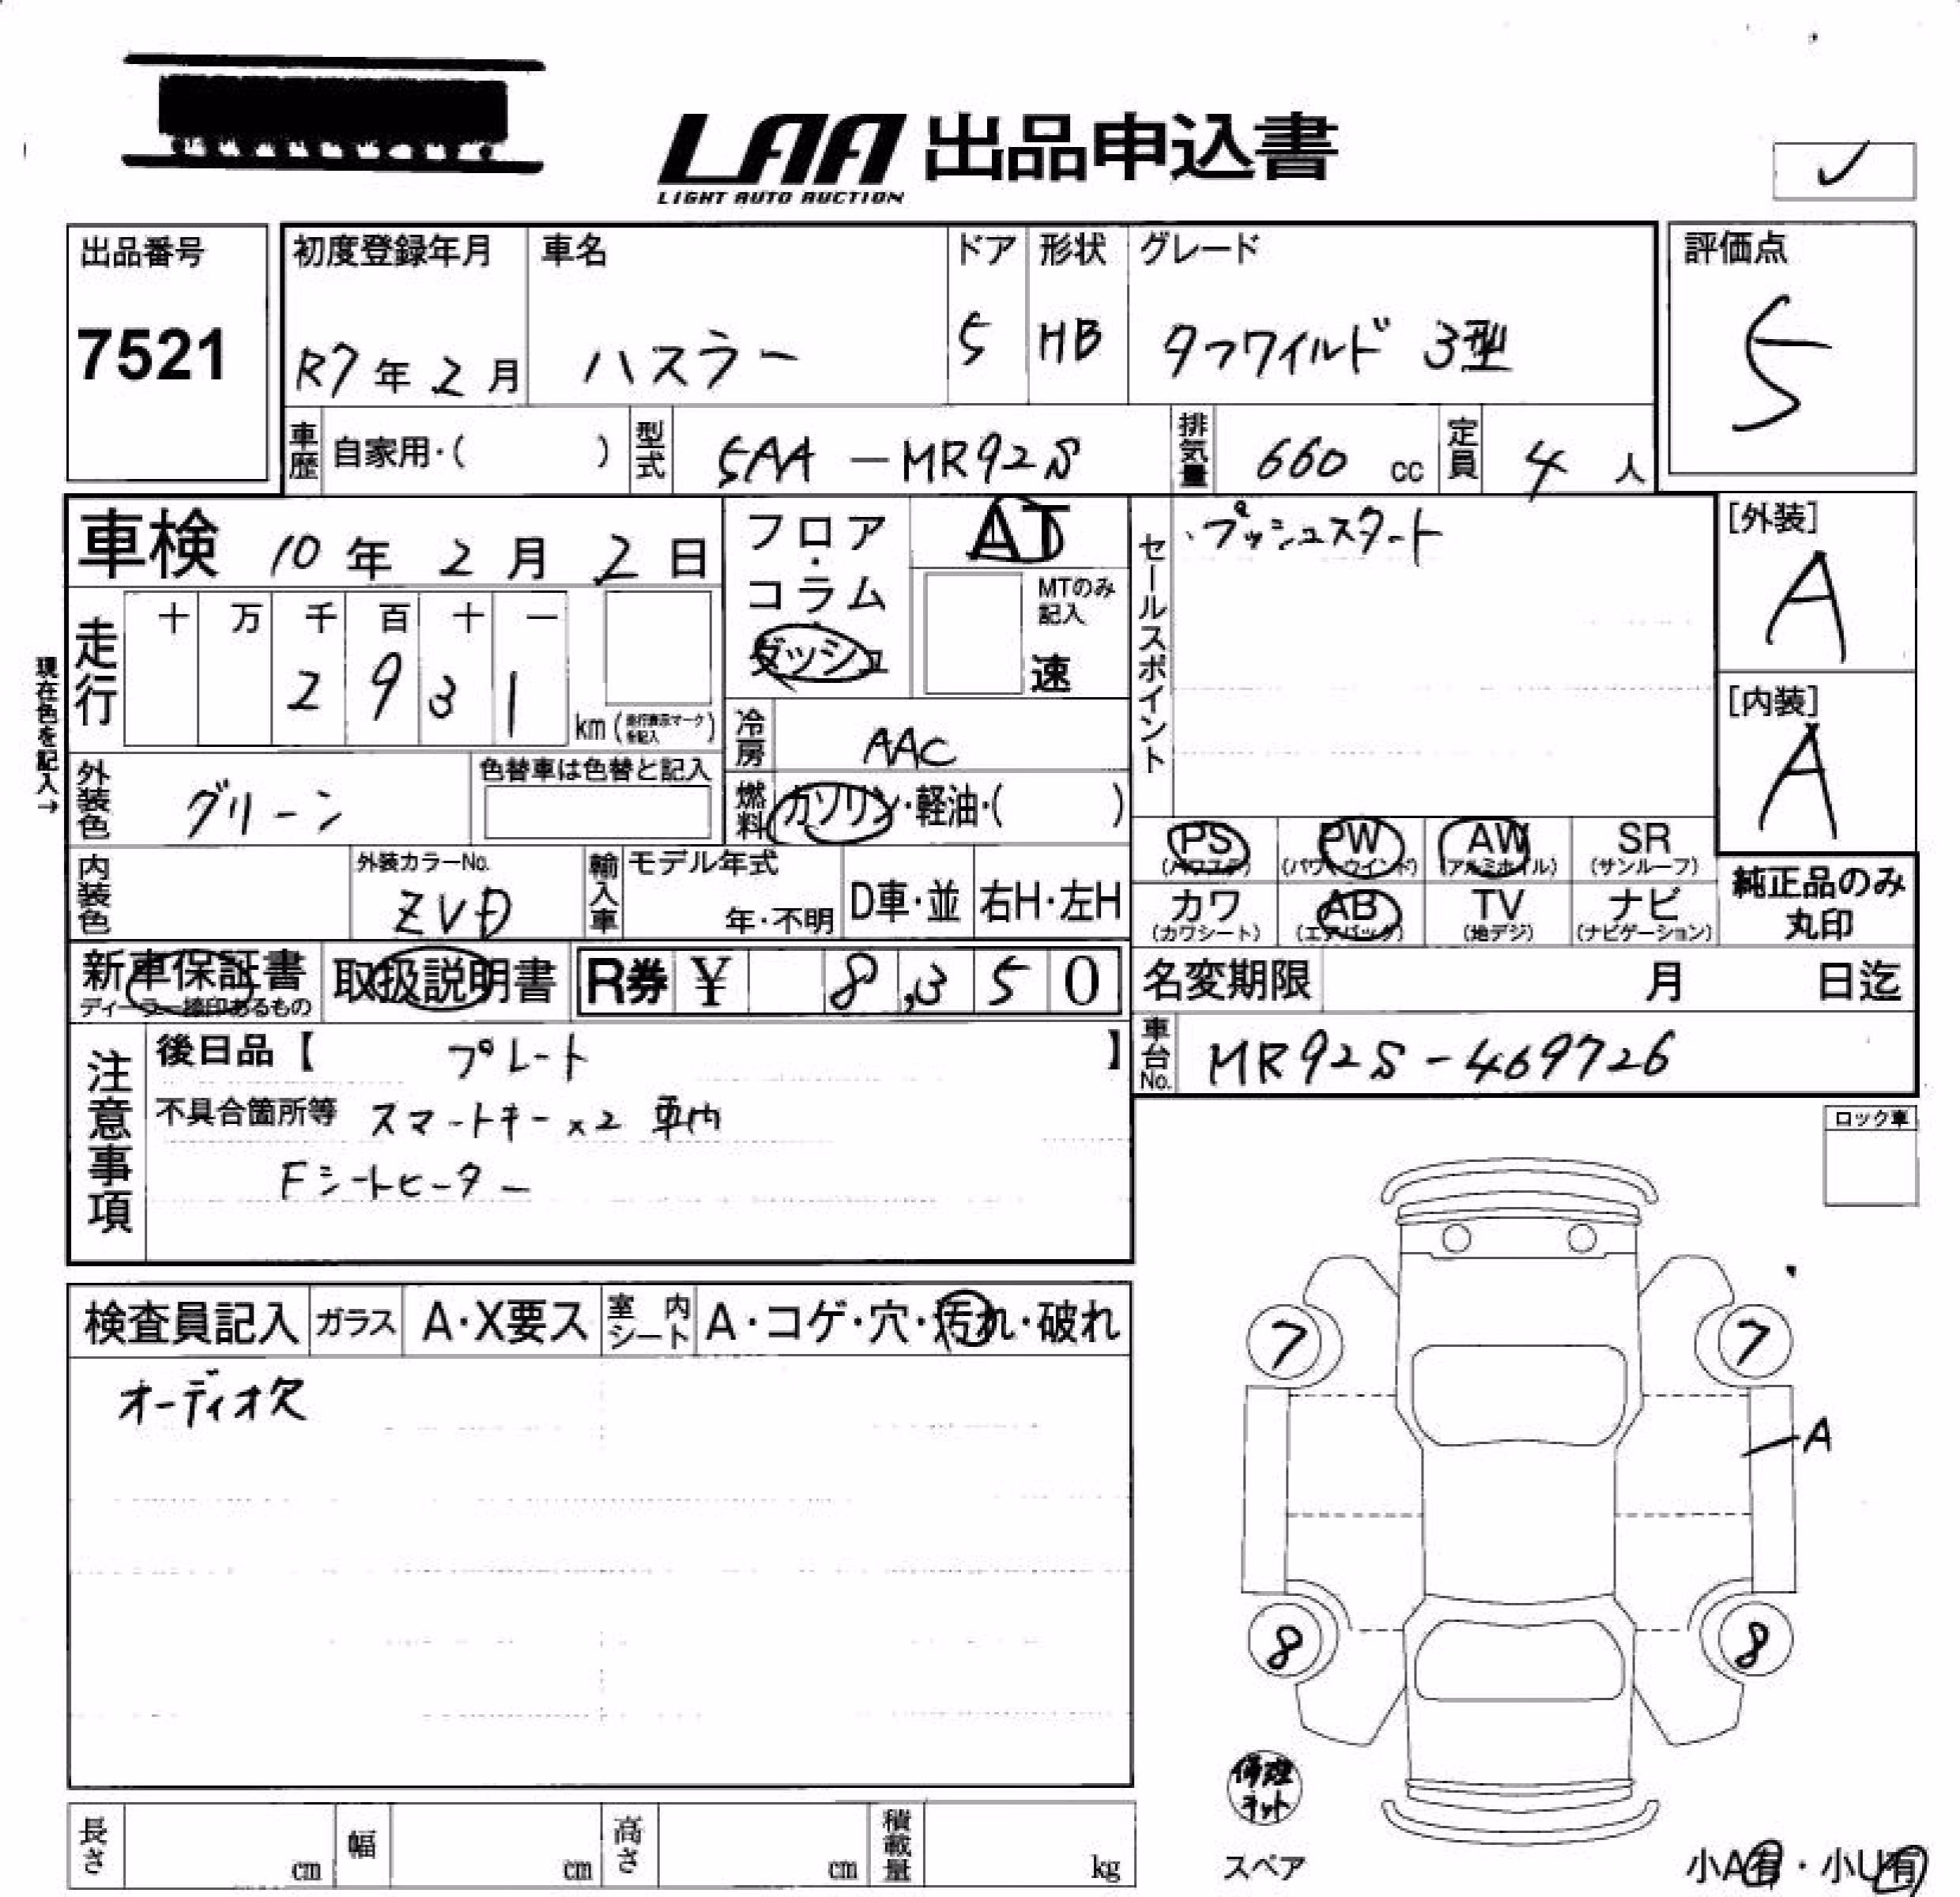 LAA 出品申込書
LIGHT AUTO AUCTION
出品番号
7521
初度登録年月
R7年2月
車名
ハスラー
ドア
5
形状
HB
グレード
タフワイルド 3型
評価点
5
車歴
自家用・( )
型式
5AA-MR92S
排気量
660 cc
定員
4人
車検 10年2月2日
フロア・コラム
ダッシュ
AT
MTのみ記入
速
セールスポイント
・プッシュスタート
[外装]
A
[内装]
A
現在色を記入→
走行
十 万 千 百 十 一
2 9 3 1
km (走行表示マークを記入)
冷房
AAC
燃料
ガソリン・軽油・( )
外装色
グリーン
色替車は色替と記入
内装色
外装カラーNo.
ZVD
輸入車
モデル年式
年・不明
D車・並
右H・左H
PS (パワステ)
PW (パワーウインド)
AW (アルミホイル)
SR (サンルーフ)
カワ (カワシート)
AB (エアバック)
TV (地デジ)
ナビ (ナビゲーション)
純正品のみ丸印
新車保証書
ディーラー捺印あるもの
取扱説明書
R券 ¥ 8,350
名変期限 月 日迄
車台No.
MR92S-469726
注意事項
後日品【 プレート 】
不具合箇所等 スマートキー×2 車内
Fシートヒーター
ロック車
検査員記入
ガラス
A・X要ス
室内シート
A・コゲ・穴・汚れ・破れ
オーディオ欠
7
7
A
8
8
修理キット
スペア
小A有・小U有
長さ cm
幅 cm
高さ cm
積載量 kg